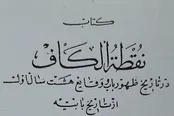 كتاب
نقطة الكاف
در تاريخ ظهور باب و وقايع هشت سال اول
از تاريخ بابيه